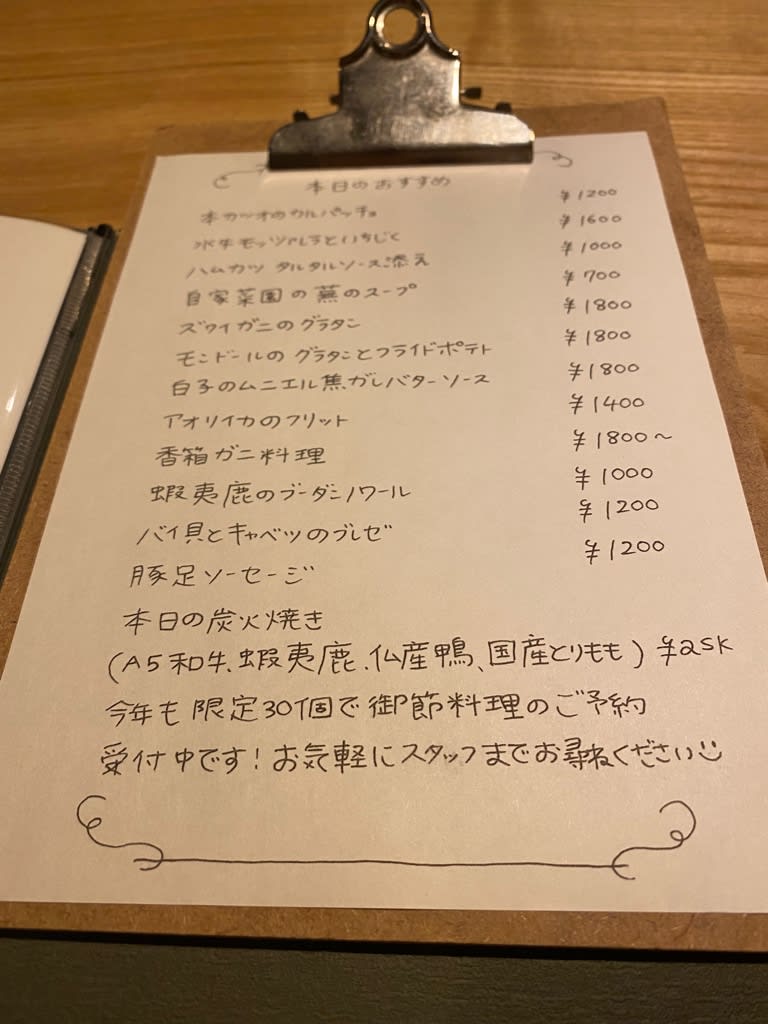 本日のおすすめ
本カツオのカルパッチョ ¥1200
水牛モッツァレラといちじく ¥1600
ハムカツ タルタルソース添え ¥1000
自家菜園の蕪のスープ ¥700
ズワイガニのグラタン ¥1800
モンドールのグラタンとフライドポテト ¥1800
白子のムニエル焦がしバターソース ¥1800
アオリイカのフリット ¥1400
香箱ガニ料理 ¥1800〜
蝦夷鹿のブーダンノワール ¥1000
バイ貝とキャベツのブレゼ ¥1200
豚足ソーセージ ¥1200
本日の炭火焼き
(A5和牛、蝦夷鹿、仏産鴨、国産とりもも) ¥ASK
今年も限定30個で御節料理のご予約
受付中です！お気軽にスタッフまでお尋ねください☺